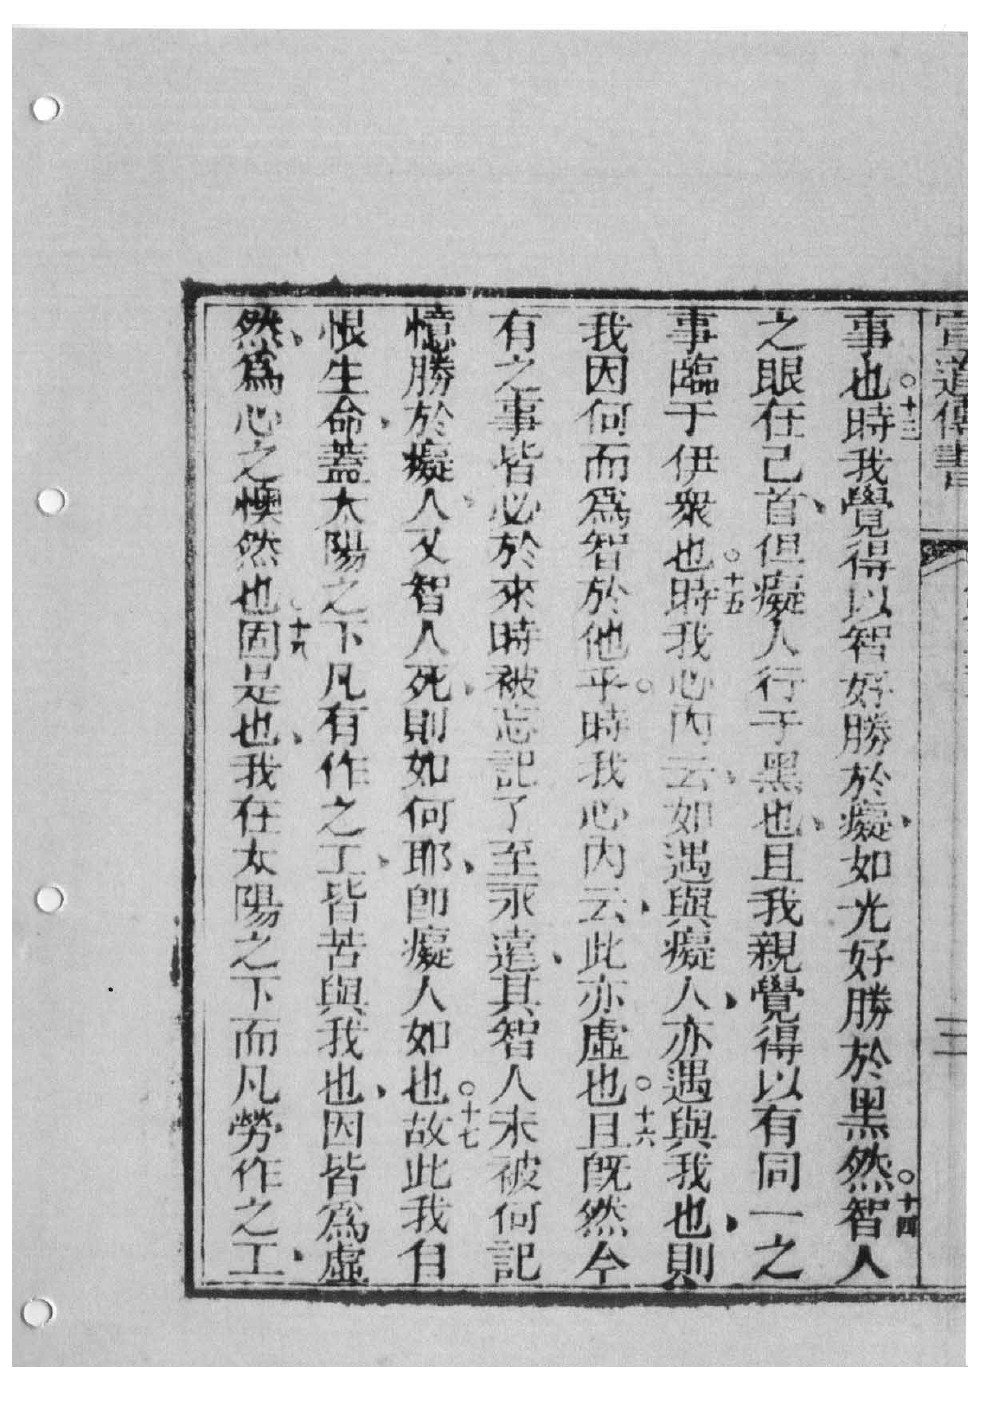 宣道傳書
事也。十三時我覺得以智好勝於癡、如光好勝於黑然。十四智人
之眼在己首、但癡人行于黑也、且我親覺得以有同一之
事臨于伊衆也。十五時我心內云、如遇與癡人、亦遇與我也、則
我因何而爲智於他乎。時我心內云、此亦虛也。十六且旣然今
有之事皆必於來時被忘記了至永遠、其智人未被何記
憶勝於癡人、又智人死、則如何耶、卽癡人如也。十七故此我自
恨生命、蓋太陽之下凡有作之工、皆苦與我也、因皆爲虛
然、爲心之懊然也。十八固是也、我在太陽之下而凡勞作之工、